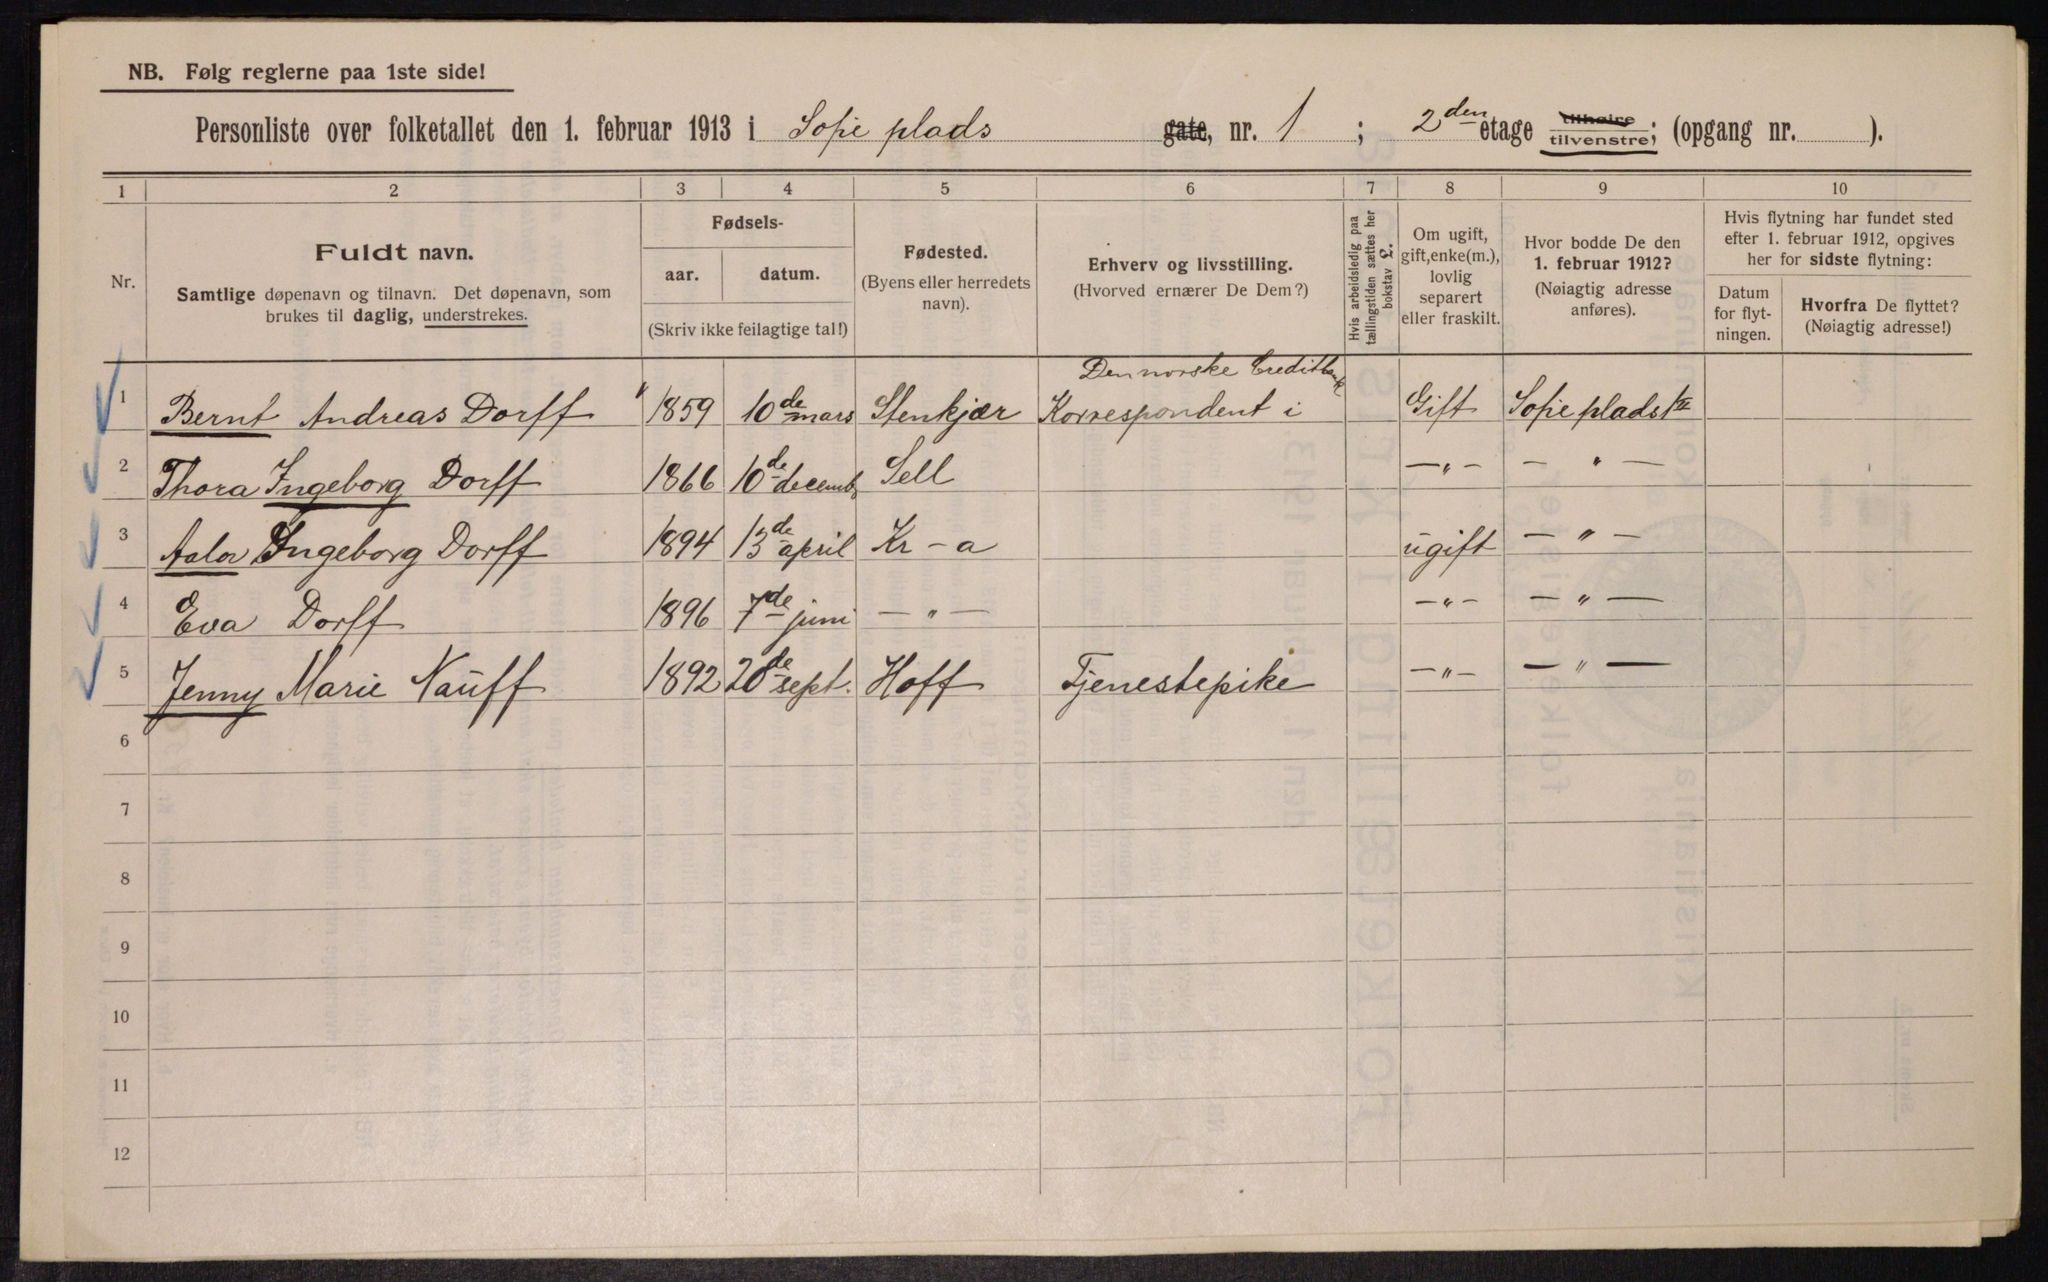 NB. Følg reglerne paa 1ste side!
Personliste over folketallet den 1. februar 1913 i Sofie plads gate, nr. 1 ; 2den etage tilhøire tilvenstre; (opgang nr. ).
1 2 3 4 5 6 7 8 9 10
Nr.
Fuldt navn.
Samtlige døpenavn og tilnavn. Det døpenavn, som
brukes til daglig, understrekes.
Fødsels-
aar. datum.
(Skriv ikke feilagtige tal!)
Fødested.
(Byens eller herredets
navn).
Erhverv og livsstilling.
(Hvorved ernærer De Dem?)
Hvis arbeidsledig paa
tællingstiden sættes her
bokstav £.
Om ugift,
gift, enke(m.),
lovlig
separert
eller fraskilt.
Hvor bodde De den
1. februar 1912?
(Nøiagtig adresse
anføres).
Hvis flytning har fundet sted
efter 1. februar 1912, opgives
her for sidste flytning:
Datum
for flyt-
ningen.
Hvorfra De flyttet?
(Nøiagtig adresse!)
Den norske Creditbank
1 Bernt Andreas Dorff 1859 10de mars Stenkjær Korrespondent i Gift Sofie plads 1 II
2 Thora Ingeborg Dorff 1866 10de decemb Sell —"— — " —
3 Aslov Ingeborg Dorff 1894 13de april Kr-a ugift — " —
4 Eva Dorff 1896 7de juni — " — —"— — " —
5 Jenny Marie Nauff 1892 20de sept. Hoff Tjenestepike —"— — " —
6
7
8
9
10
11
12